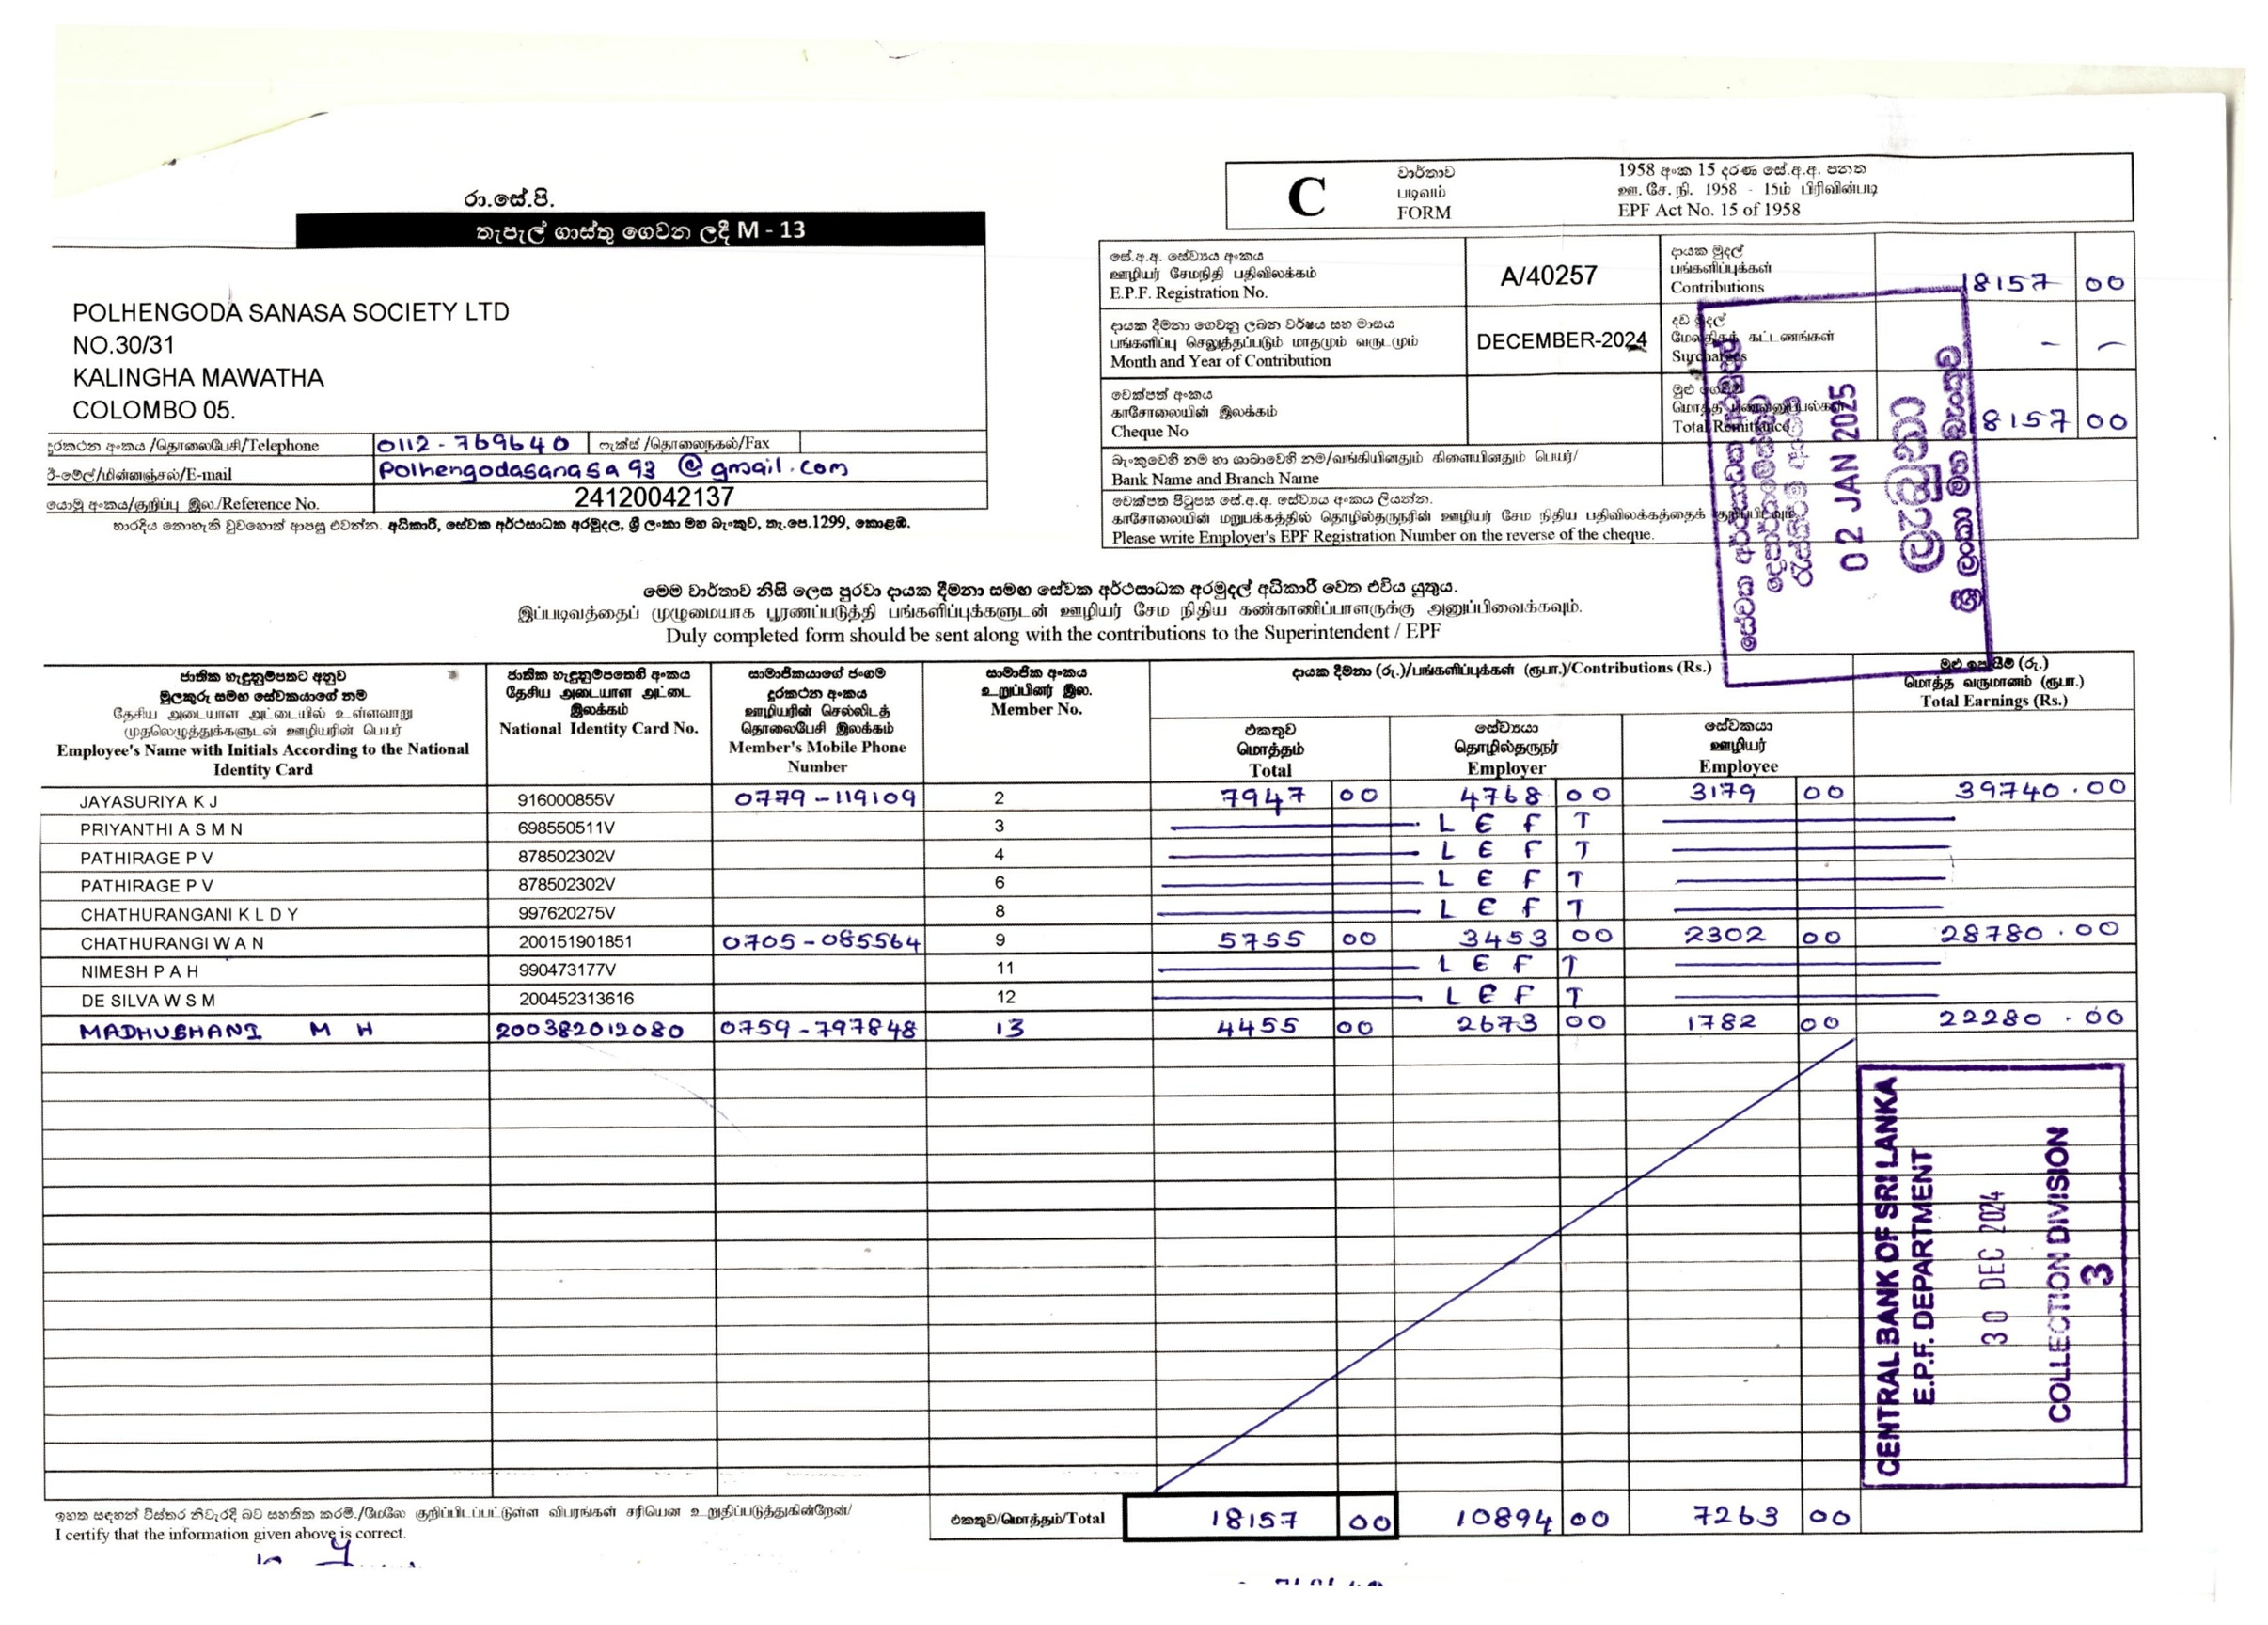 රා.සේ.පි.
තැපැල් ගාස්තු ගෙවන ලදී M - 13
POLHENGODA SANASA SOCIETY LTD
NO.30/31
KALINGHA MAWATHA
COLOMBO 05.
දුරකථන අංකය /தொலைபேசி/Telephone 0112-769640 ෆැක්ස් /தொலைநகல்/Fax
ඊ-මේල්/மின்னஞ்சல்/E-mail Polhengodasanasa93@gmail.com
යොමු අංකය/குறிப்பு இல./Reference No. 24120042137
භාරදිය නොහැකි වුවහොත් ආපසු එවන්න. අධිකාරී, සේවක අර්ථසාධක අරමුදල, ශ්‍රී ලංකා මහ බැංකුව, තැ.පෙ.1299, කොළඹ.
C
වාර්තාව
படிவம்
FORM
1958 අංක 15 දරණ සේ.අ.අ. පනත
ஊ. சே. நி. 1958 - 15ம் பிரிவின்படி
EPF Act No. 15 of 1958
සේ.අ.අ. සේව්‍යය අංකය
ஊழியர் சேமநிதி பதிவிலக்கம்
E.P.F. Registration No.
A/40257
දායක මුදල්
பங்களிப்புக்கள்
Contributions
18157 00
දායක දීමනා ගෙවනු ලබන වර්ෂය සහ මාසය
பங்களிப்பு செலுத்தப்படும் மாதமும் வருடமும்
Month and Year of Contribution
DECEMBER-2024
දඩ මුදල්
கட்டணங்கள்
Surcharges
- -
චෙක්පත් අංකය
காசோலையின் இலக்கம்
Cheque No
மொத்த
Total Remittance
8157 00
බැංකුවෙහි නම හා ශාඛාවෙහි නම/வங்கியினதும் கிளையினதும் பெயர்/
Bank Name and Branch Name
චෙක්පත පිටුපස සේ.අ.අ. සේව්‍යය අංකය ලියන්න.
காசோலையின் மறுபக்கத்தில் தொழில்தருநரின் ஊழியர் சேம நிதிய பதிவிலக்கத்தைக்
Please write Employer's EPF Registration Number on the reverse of the cheque.
සේවක අර්ථසාධක අරමුදල්
දෙපාර්තමේන්තුව
02 JAN 2025
ලැබුණා
ශ්‍රී ලංකා මහ බැංකුව
මෙම වාර්තාව නිසි ලෙස පුරවා දායක දීමනා සමඟ සේවක අර්ථසාධක අරමුදල් අධිකාරී වෙත එවිය යුතුය.
இப்படிவத்தைப் முழுமையாக பூரணப்படுத்தி பங்களிப்புக்களுடன் ஊழியர் சேம நிதிய கண்காணிப்பாளருக்கு அனுப்பிவைக்கவும்.
Duly completed form should be sent along with the contributions to the Superintendent / EPF
ජාතික හැඳුනුම්පතට අනුව
මුලකුරු සමඟ සේවකයාගේ නම
தேசிய அடையாள அட்டையில் உள்ளவாறு
முதலெழுத்துக்களுடன் ஊழியரின் பெயர்
Employee's Name with Initials According to the National
Identity Card
ජාතික හැඳුනුම්පතෙහි අංකය
தேசிய அடையாள அட்டை
இலக்கம்
National Identity Card No.
සාමාජිකයාගේ ජංගම
දුරකථන අංකය
ஊழியரின் செல்லிடத்
தொலைபேசி இலக்கம்
Member's Mobile Phone
Number
සාමාජික අංකය
உறுப்பினர் இல.
Member No.
දායක දීමනා (රු.)/பங்களிப்புக்கள் (ரூபா.)/Contributions (Rs.)
එකතුව
மொத்தம்
Total
සේව්‍යයා
தொழில்தருநர்
Employer
සේවකයා
ஊழியர்
Employee
මුළු ඉපැයීම් (රු.)
மொத்த வருமானம் (ரூபா.)
Total Earnings (Rs.)
JAYASURIYA K J 916000855V 0779-119109 2 7947 00 4768 00 3179 00 39740.00
PRIYANTHI A S M N 698550511V 3 LEFT
PATHIRAGE P V 878502302V 4 LEFT
PATHIRAGE P V 878502302V 6 LEFT
CHATHURANGANI K L D Y 997620275V 8 LEFT
CHATHURANGI W A N 200151901851 0705-085564 9 5755 00 3453 00 2302 00 28780.00
NIMESH P A H 990473177V 11 LEFT
DE SILVA W S M 200452313616 12 LEFT
MADHUBHANI M H 200382012080 0759-797848 13 4455 00 2673 00 1782 00 22280.00
CENTRAL BANK OF SRI LANKA
E.P.F. DEPARTMENT
30 DEC 2024
COLLECTION DIVISION
3
ඉහත සඳහන් විස්තර නිවැරදි බව සහතික කරමි./மேலே குறிப்பிடப்பட்டுள்ள விபரங்கள் சரியென உறுதிப்படுத்துகின்றேன்/
I certify that the information given above is correct.
එකතුව/மொத்தம்/Total 18157 00 10894 00 7263 00